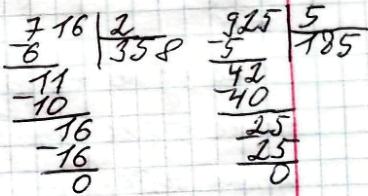 716 | 2
-6 | 358
11
-10
16
-16
0
925 | 5
-5 | 185
42
-40
25
-25
0